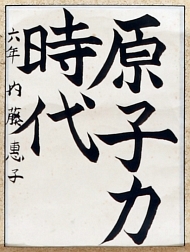 原子力
時代
六年 内藤惠子